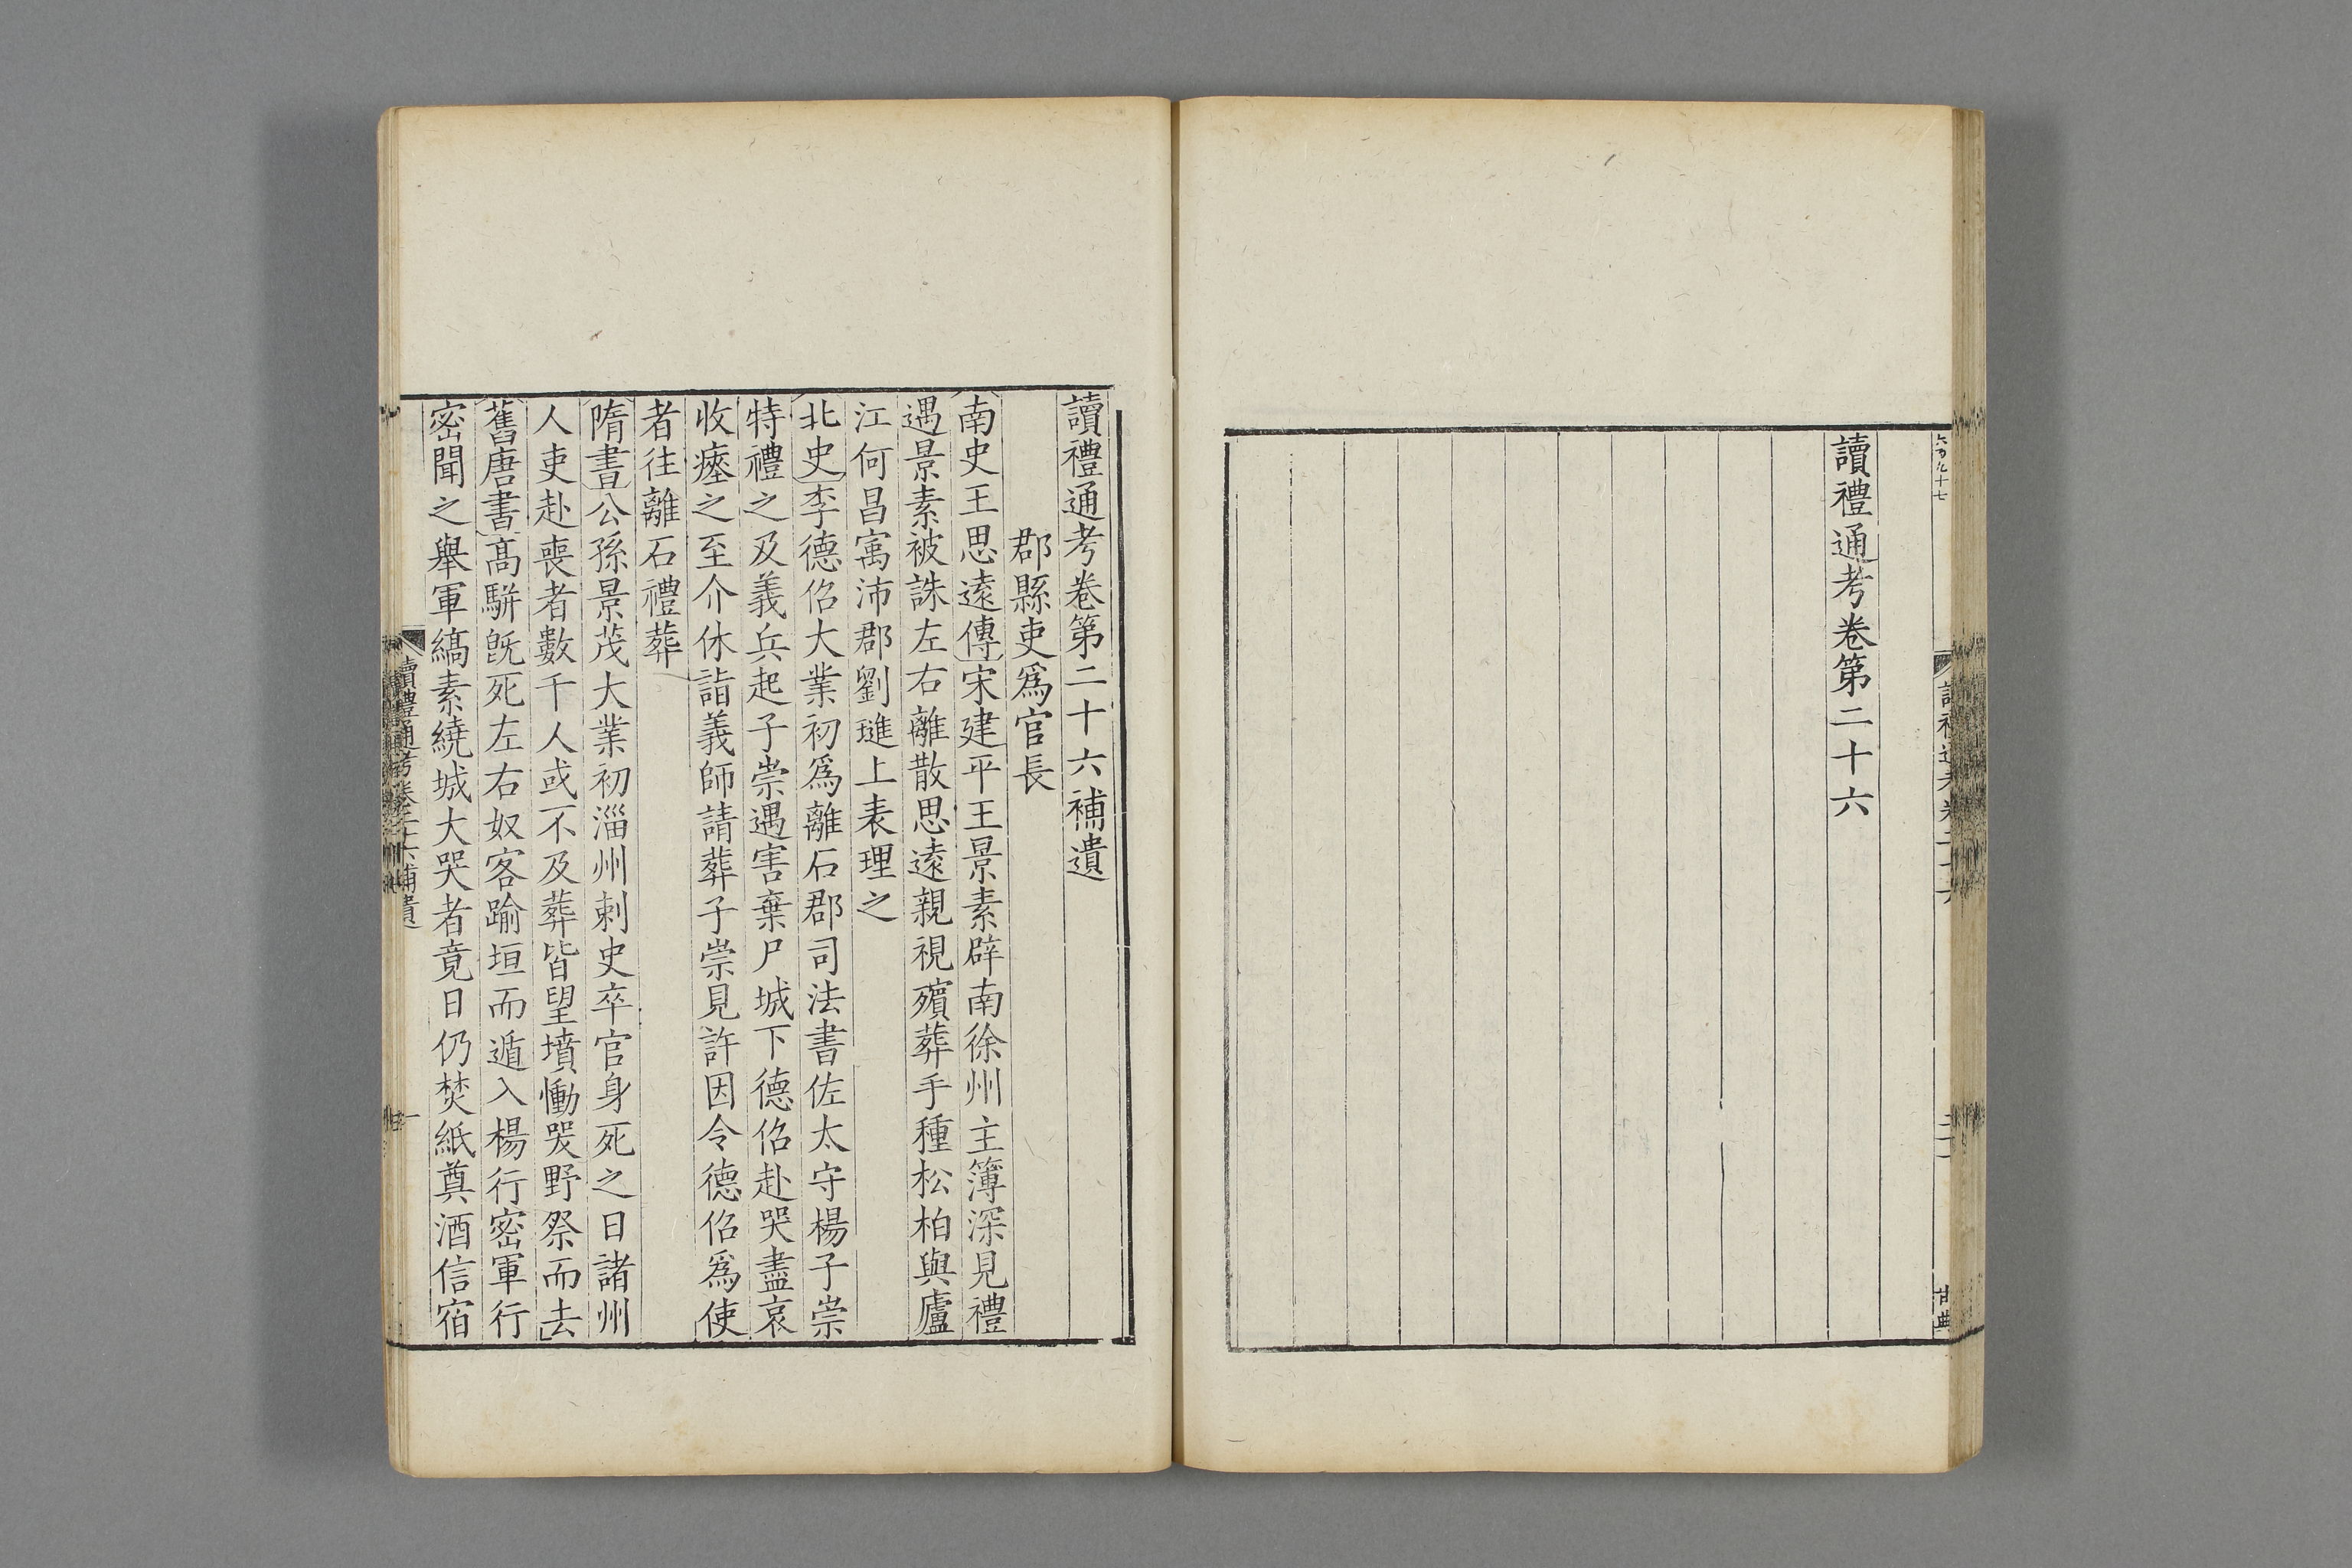 讀禮通考卷第二十六
讀禮通考卷第二十六補遺
郡縣吏爲官長
南史王思遠傳宋建平王景素辟南徐州主簿深見禮
遇景素被誅左右離散思遠親視殯葬手種松柏與廬
江何昌㝢沛郡劉璡上表理之
北史李德佋大業初爲離石郡司法書佐太守楊子崇
特禮之及義兵起子崇遇害棄尸城下德佋赴哭盡哀
收瘞之至介休詣義師請葬子崇見許因令德佋爲使
者往離石禮葬
隋書公孫景茂大業初淄州刺史卒官身死之日諸州
人吏赴喪者數千人或不及葬皆望墳慟哭野祭而去
舊唐書高駢旣死左右奴客踰垣而遁入楊行密軍行
密聞之舉軍縞素繞城大哭者竟日仍焚紙奠酒信宿
讀禮通考卷二十六補遺
一